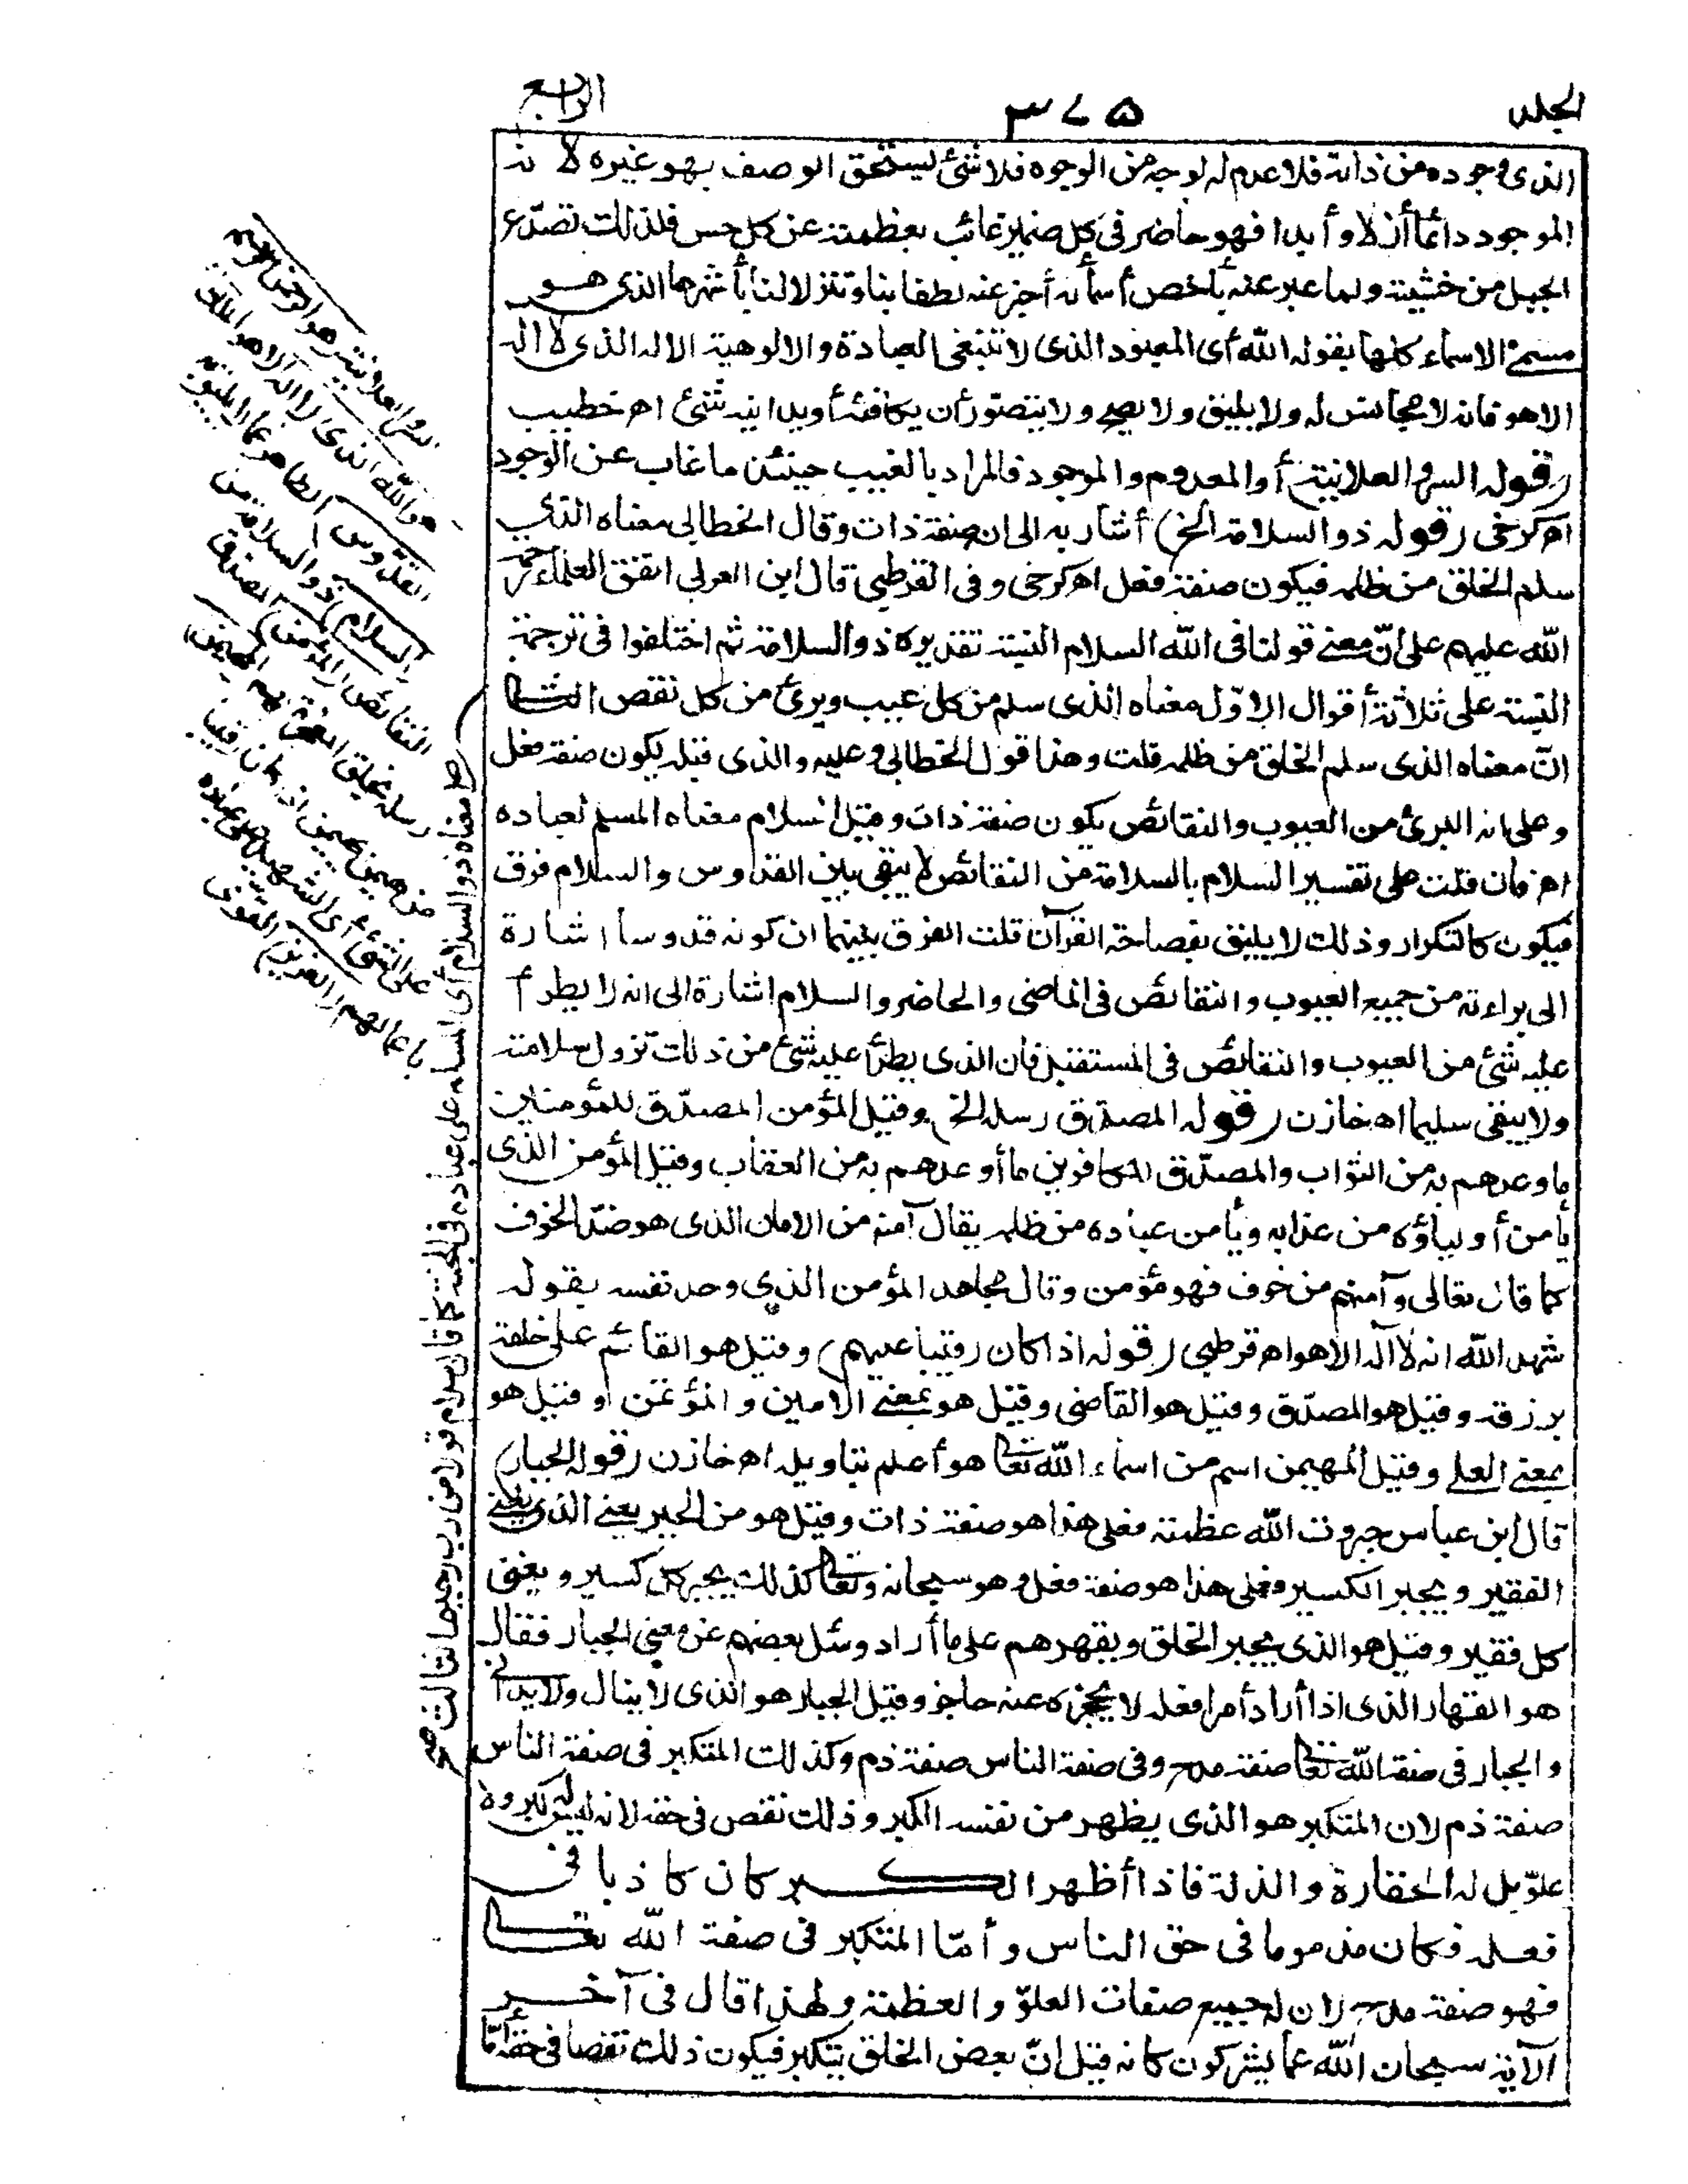 الجلد
٣٧٥
الرابع
الذى وجوده من ذاته فلا عدم له لوجه من الوجوه فلا شئ يستحق الوصف بهو غيره لانه
الموجود دائما أزلا وأبدا فهو حاضر فى كل ضمير غائب بعظمته عن كل حس فلذلك تصدّع
الجبل من خشيته ولما عبر عنه بأخص أسمائه أخبر عنه لطفا بنا وتنزلا لنا بأشهرها الذى هو
مسمى الاسماء كلها بقوله الله أى المعبود الذى لا تنبغى العبادة والالوهية الا له الذى لا اله
الا هو فانه لا مجانس له ولا يليق ولا يصح ولا يتصور أن يكافئه أو يدانيه شئ اه خطيب
(قوله السر والعلانية) أو المعدوم والموجود فالمراد بالغيب حينئذ ما غاب عن الوجود
اه كرخى (قوله ذو السلامة الخ) أشار به الى ان صفة ذات وقال الخطابى معناه الذى
سلم الخلق من ظلمه فيكون صفة فعل اه كرخى وفى القرطبى قال ابن العربى اتفق العلماء رحمة
الله عليهم على انّ معنى قولنا فى الله السلام النسبة تقديره ذو السلامة ثم اختلفوا فى ترجمة
النسبة على ثلاثة أقوال الاوّل معناه الذى سلم من كل عيب وبرئ من كل نقص الثانى
انّ معناه الذى سلم الخلق من ظلمه قلت وهذا قول الخطابى وعليه والذى قبله يكون صفة فعل
وعلى انه البرئ من العيوب والنقائص يكون صفة ذات وقيل السلام معناه المسلم لعباده
اه فان قلت على تفسير السلام بالسلامة من النقائص لا يبقى بين القدوس والسلام فرق
فيكون كالتكرار وذلك لا يليق بفصاحة القرآن قلت الفرق بينهما ان كونه قدوسا اشارة
الى براءته من جميع العيوب والنقائص فى الماضى والحاضر والسلام اشارة الى انه لا يطرأ
عليه شئ من العيوب والنقائص فى المستقبل فان الذى يطرأ عليه شئ من ذلك تزول سلامته
ولا يبقى سليما اه خازن (قوله المصدّق رسله الخ) وقيل المؤمن المصدّق للمؤمنين
ما وعدهم به من الثواب والمصدّق الكافرين ما أوعدهم به من العقاب وقيل المؤمن الذى
يأمن أولياؤه من عذابه ويأمن عباده من ظلمه يقال آمنه من الامان الذى هو ضدّ الخوف
كما قال تعالى وآمنهم من خوف فهو مؤمن وقال مجاهد المؤمن الذى وحد نفسه بقوله
شهد الله انه لا اله الا هو اه قرطبى (قوله اذا كان رقيبا عليهم) وقيل هو القائم على خلقه
برزقه وقيل هو المصدّق وقيل هو القاضى وقيل هو بمعنى الامين والمؤتمن وقيل هو
بمعنى العلى وقيل المهيمن اسم من اسماء الله تعالى هو أعلم بتاويله اه خازن (قوله الجبار)
قال ابن عباس جبروت الله عظمته فعلى هذا هو صفة ذات وقيل هو من الجبر يعنى الذى يغنى
الفقير ويجبر الكسير فعلى هذا هو صفة فعل وهو سبحانه وتعالى كذلك يجبر كل كسير ويغنى
كل فقير وقيل هو الذى يجبر الخلق ويقهرهم على ما أراد وسئل بعضهم عن معنى الجبار فقال
هو القهار الذى اذا أراد أمرا فعله لا يحجزه عنه حاجز وقيل الجبار هو الذى لا ينال ولا يدانى
والجبار فى صفة الله تعالى صفة مدح وفى صفة الناس صفة ذم وكذلك المتكبر فى صفة الناس
صفة ذم لان المتكبر هو الذى يظهر من نفسه الكبر وذلك نقص فى حقه لانه ليس له كبر ولا
علوّ بل له الحقارة والذلة فاذا أظهر الكبر كان كاذبا فى
فعله فكان مذموما فى حق الناس وأمّا المتكبر فى صفة الله تعالى
فهو صفة مدح لان له جميع صفات العلوّ والعظمة ولهذا قال فى آخر
الآية سبحان الله عما يشركون كانه قيل انّ بعض الخلق يتكبر فيكون ذلك نقصا فى حقه أمّا
السر والعلانية هو الرحمن الرحيم
هو الله الذى لا اله الا هو الملك
القدوس) الطاهر عما لا يليق به
(السلام) ذو السلامة من
النقائص (المؤمن) المصدق
رسله بخلق المعجزة لهم (المهيمن)
من هيمن يهيمن اذا كان رقيبا
على الشئ أى الشهيد على عباده
باعمالهم (العزيز) القوى
معناه ذو السلام أى المسلم على عباده فى الجنة كما قال سلام قولا من رب رحيم الثالث صح